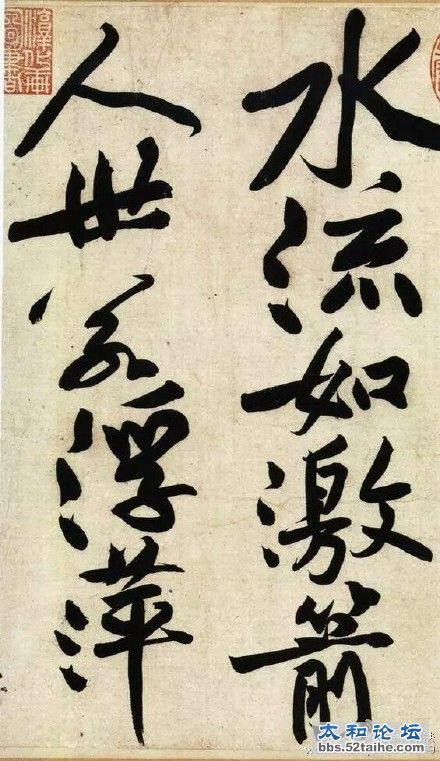 水流如激箭
人世若浮萍
太和论坛
bbs.52taihe.com